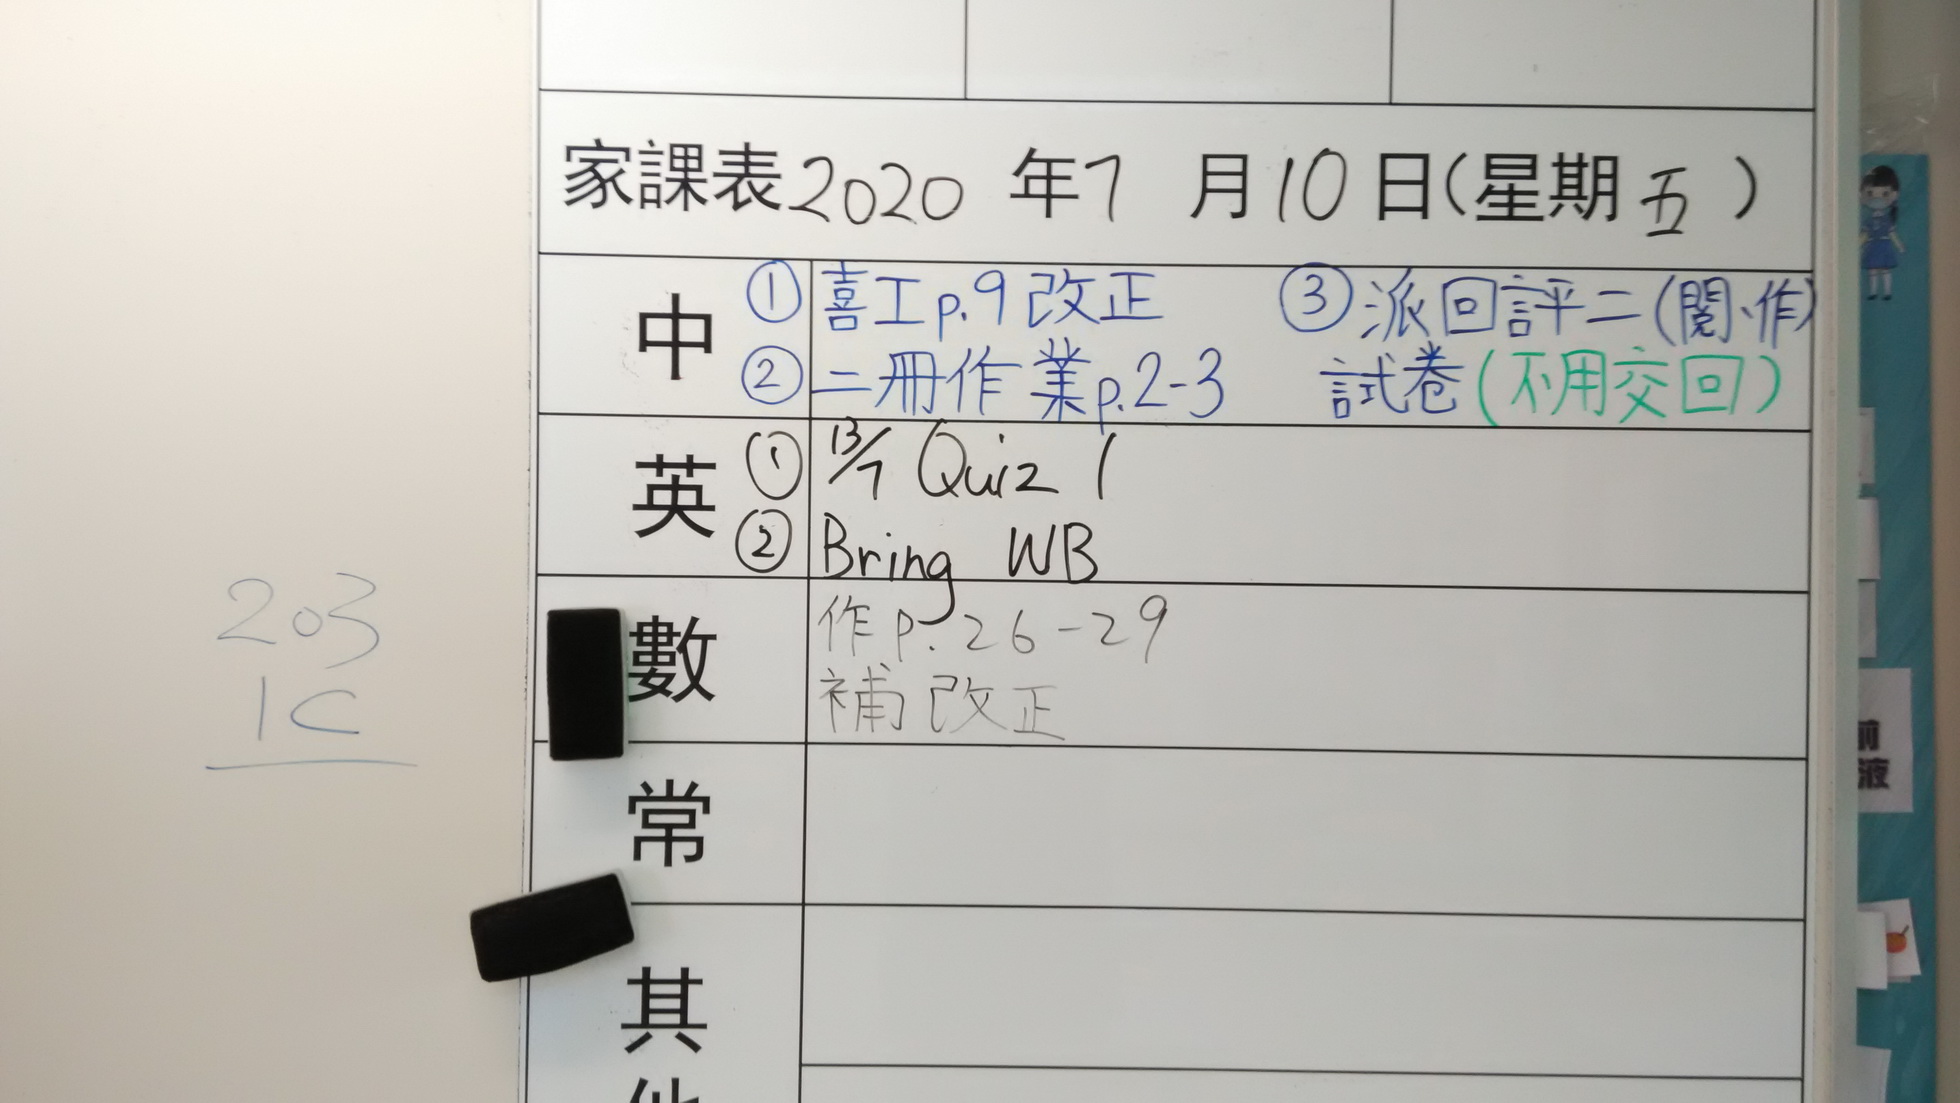 家課表2020年7月10日(星期五)
中 ① 喜工p.9改正 ③派回評二(閱、作)
② 二冊作業p.2-3 試卷(不用交回)
英 ① 13/7 Quiz 1
② Bring WB
數 作p.26-29
補改正
常
其
他
203
1C
前
液